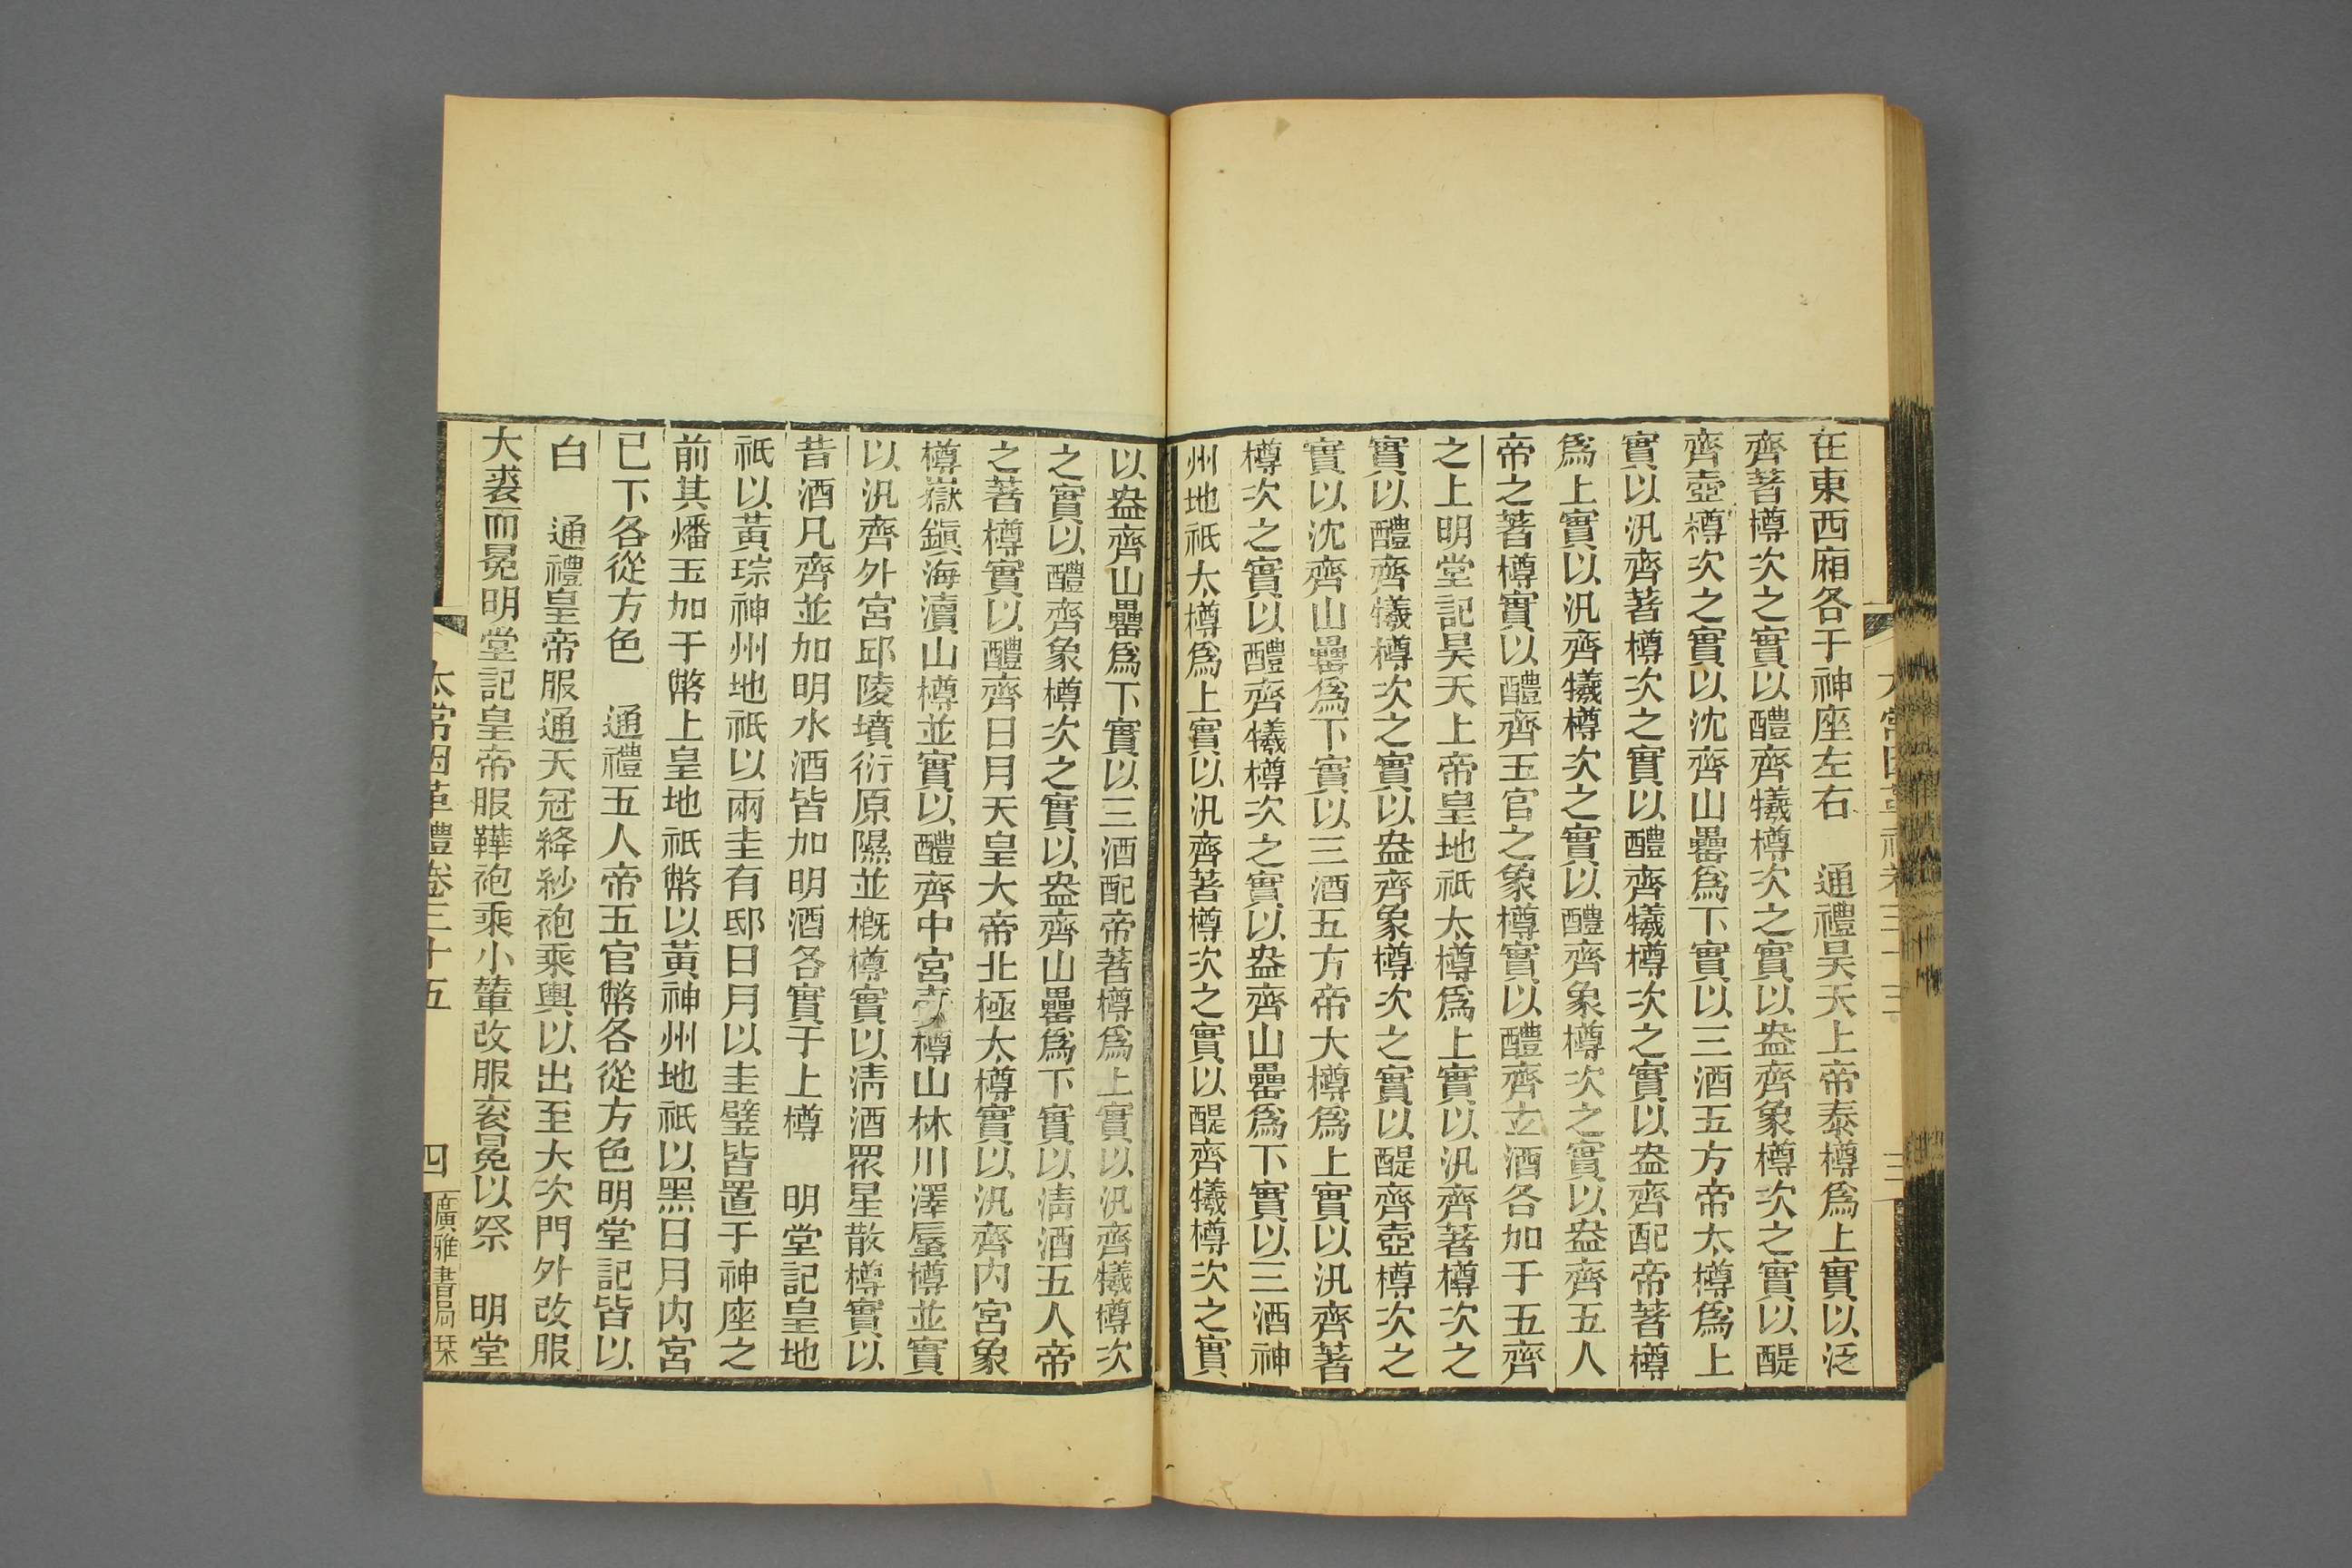 在東西廂各于神座左右　通禮昊天上帝泰樽爲上實以泛
齊著樽次之實以醴齊犧樽次之實以盎齊象樽次之實以醍
齊壺樽次之實以沈齊山罍爲下實以三酒五方帝太樽爲上
實以汎齊著樽次之實以醴齊犧樽次之實以盎齊配帝著樽
爲上實以汎齊犧樽次之實以醴齊象樽次之實以盎齊五人
帝之著樽實以醴齊五官之象樽實以醴齊立酒各加于五齊
之上明堂記昊天上帝皇地祇太樽爲上實以汎齊著樽次之
實以醴齊犧樽次之實以盎齊象樽次之實以醍齊壺樽次之
實以沈齊山罍爲下實以三酒五方帝大樽爲上實以汎齊著
樽次之實以醴齊犧樽次之實以盎齊山罍爲下實以三酒神
州地祇太樽爲上實以汎齊著樽次之實以醍齊犧樽次之實
以盎齊山罍爲下實以三酒配帝著樽爲上實以汎齊犧樽次
之實以醴齊象樽次之實以盎齊山罍爲下實以淸酒五人帝
之著樽實以醴齊日月天皇大帝北極太樽實以汎齊内宮象
樽嶽鎭海瀆山樽並實以醴齊中宮壺樽山林川澤蜃樽並實
以汎齊外宮邱陵墳衍原隰並概樽實以淸酒眾星散樽實以
昔酒凡齊並加明水酒皆加明酒各實于上樽　明堂記皇地
祇以黃琮神州地祇以兩圭有邸日月以圭璧皆置于神座之
前其燔玉加于幣上皇地祇幣以黃神州地祇以黑日月内宮
已下各從方色　通禮五人帝五官幣各從方色明堂記皆以
白　通禮皇帝服通天冠絳紗袍乘輿以出至大次門外改服
大裘而冕明堂記皇帝服鞾袍乘小輦改服袞冕以祭　明堂
太常因革禮卷三十五　四　廣雅書局栞